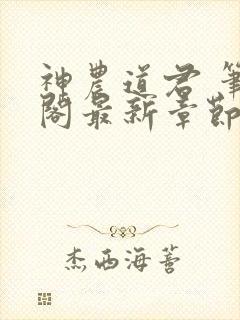 神農道君 筆
閣最新章節
杰西海蒼